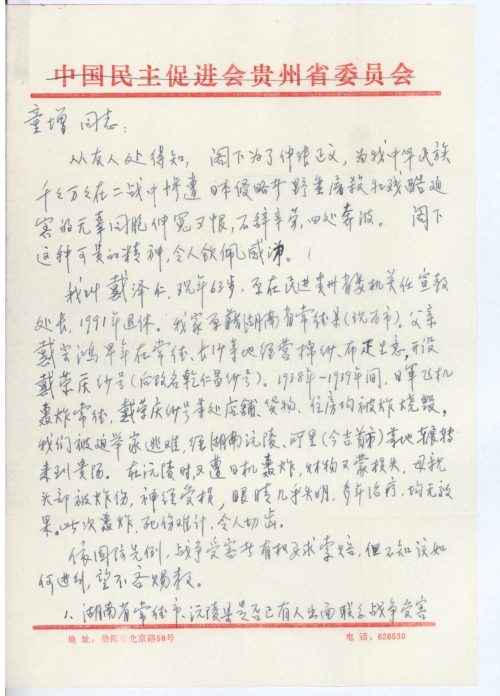 中国民主促进会贵州省委员会
童增同志：
从友人处得知，阁下为了伸张正义，为我中华民族
千千万万在二战中惨遭日本侵略军野蛮屠杀和残酷迫
害的无辜同胞伸冤雪恨，不辞辛劳，四处奔波。阁下
这种可贵的精神，令人钦佩、感沛。
我叫戴泽仁，现年63岁，原在民进贵州省委机关任宣教
处长，1991年退休。我家原籍湖南省常德县（现为市）。父亲
戴宗鸿早年在常德、长沙等地经营棉纱、布疋生意，开设
戴荣庆纱号（后改名乾仁昌纱号）。1938年—1939年间，日军飞机
轰炸常德，戴荣庆纱号某处店铺、货物、住房均被炸烧毁，
我们被迫举家逃难，经湖南沅陵、所里（今吉首市）等地辗转
来到贵阳。在沅陵时，又遭日机轰炸，财物又蒙损失，母亲
头部被炸伤，神经受损，眼睛几乎失明，多年治疗，均无效
果。此次轰炸，死伤难计，令人切齿。
依国际先例，战争受害者有权要求索赔，但不知该如
何进行，望不吝赐教。
1、湖南省常德市、沅陵县是否已有人出面联系战争受害
地址：贵阳市北京路58号 电话：626530